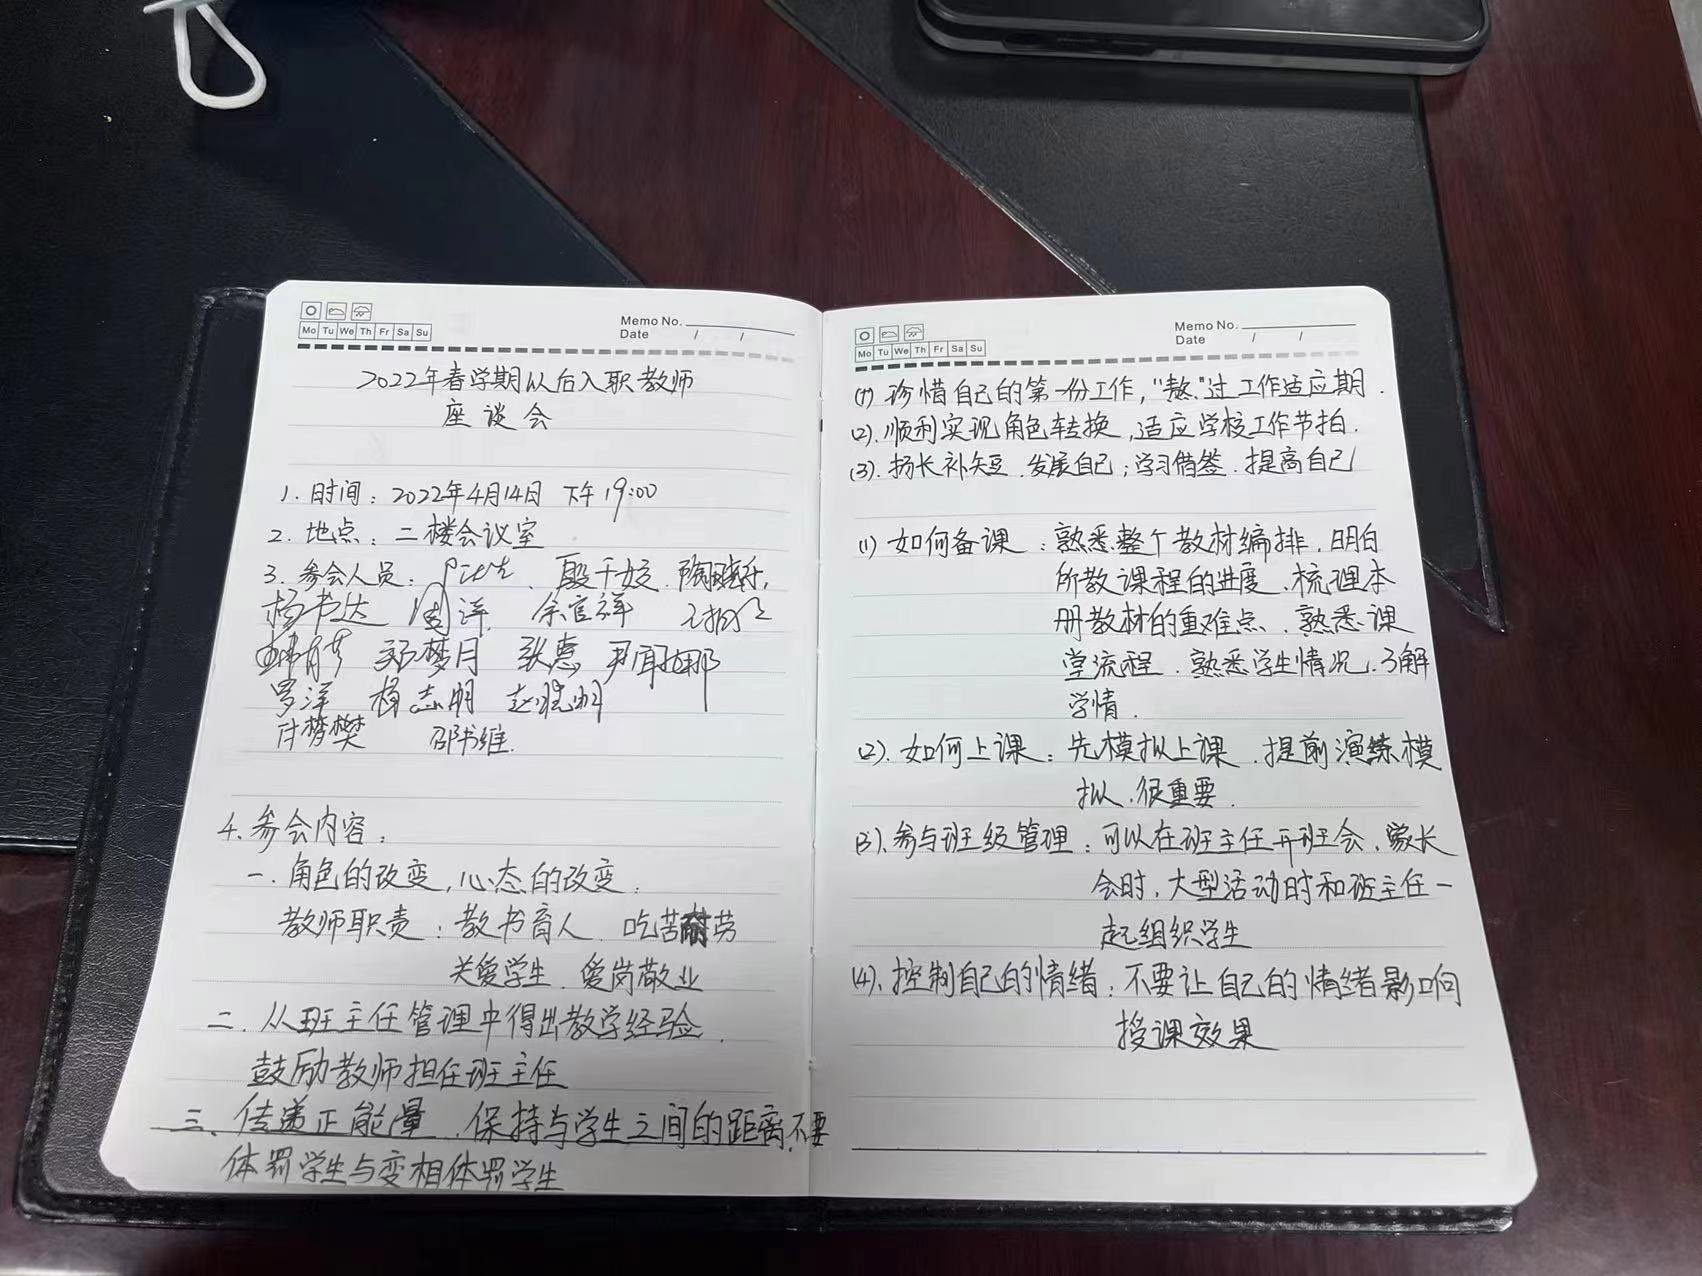 Mo Tu We Th Fr Sa Su
Memo No.
Date / /
2022年春学期以后入职教师
座谈会
1. 时间：2022年4月14日 下午19:00
2. 地点：二楼会议室
3. 参会人员：
杨书达 周洋 余官祥
郑梦月 张惠
罗洋 杨志明 赵晓明
付梦樊 邵书维.
4. 参会内容：
一. 角色的改变,心态的改变：
教师职责：教书育人、吃苦耐劳
关爱学生、爱岗敬业
二. 从班主任管理中得出教学经验、
鼓励教师担任班主任
三、传递正能量、保持与学生之间的距离,不要
体罚学生与变相体罚学生
Mo Tu We Th Fr Sa Su
Memo No.
Date / /
(1) 珍惜自己的第一份工作，“熬”过工作适应期.
(2). 顺利实现角色转换,适应学校工作节拍.
(3). 扬长补短、发展自己；学习借签、提高自己
(1) 如何备课：熟悉整个教材编排、明白
所教课程的进度、梳理本
册教材的重难点、熟悉课
堂流程、熟悉学生情况、了解
学情.
(2). 如何上课：先模拟上课、提前演练模
拟、很重要.
(3). 参与班级管理：可以在班主任开班会、家长
会时、大型活动时和班主任一
起组织学生
(4). 控制自己的情绪：不要让自己的情绪影响
授课效果